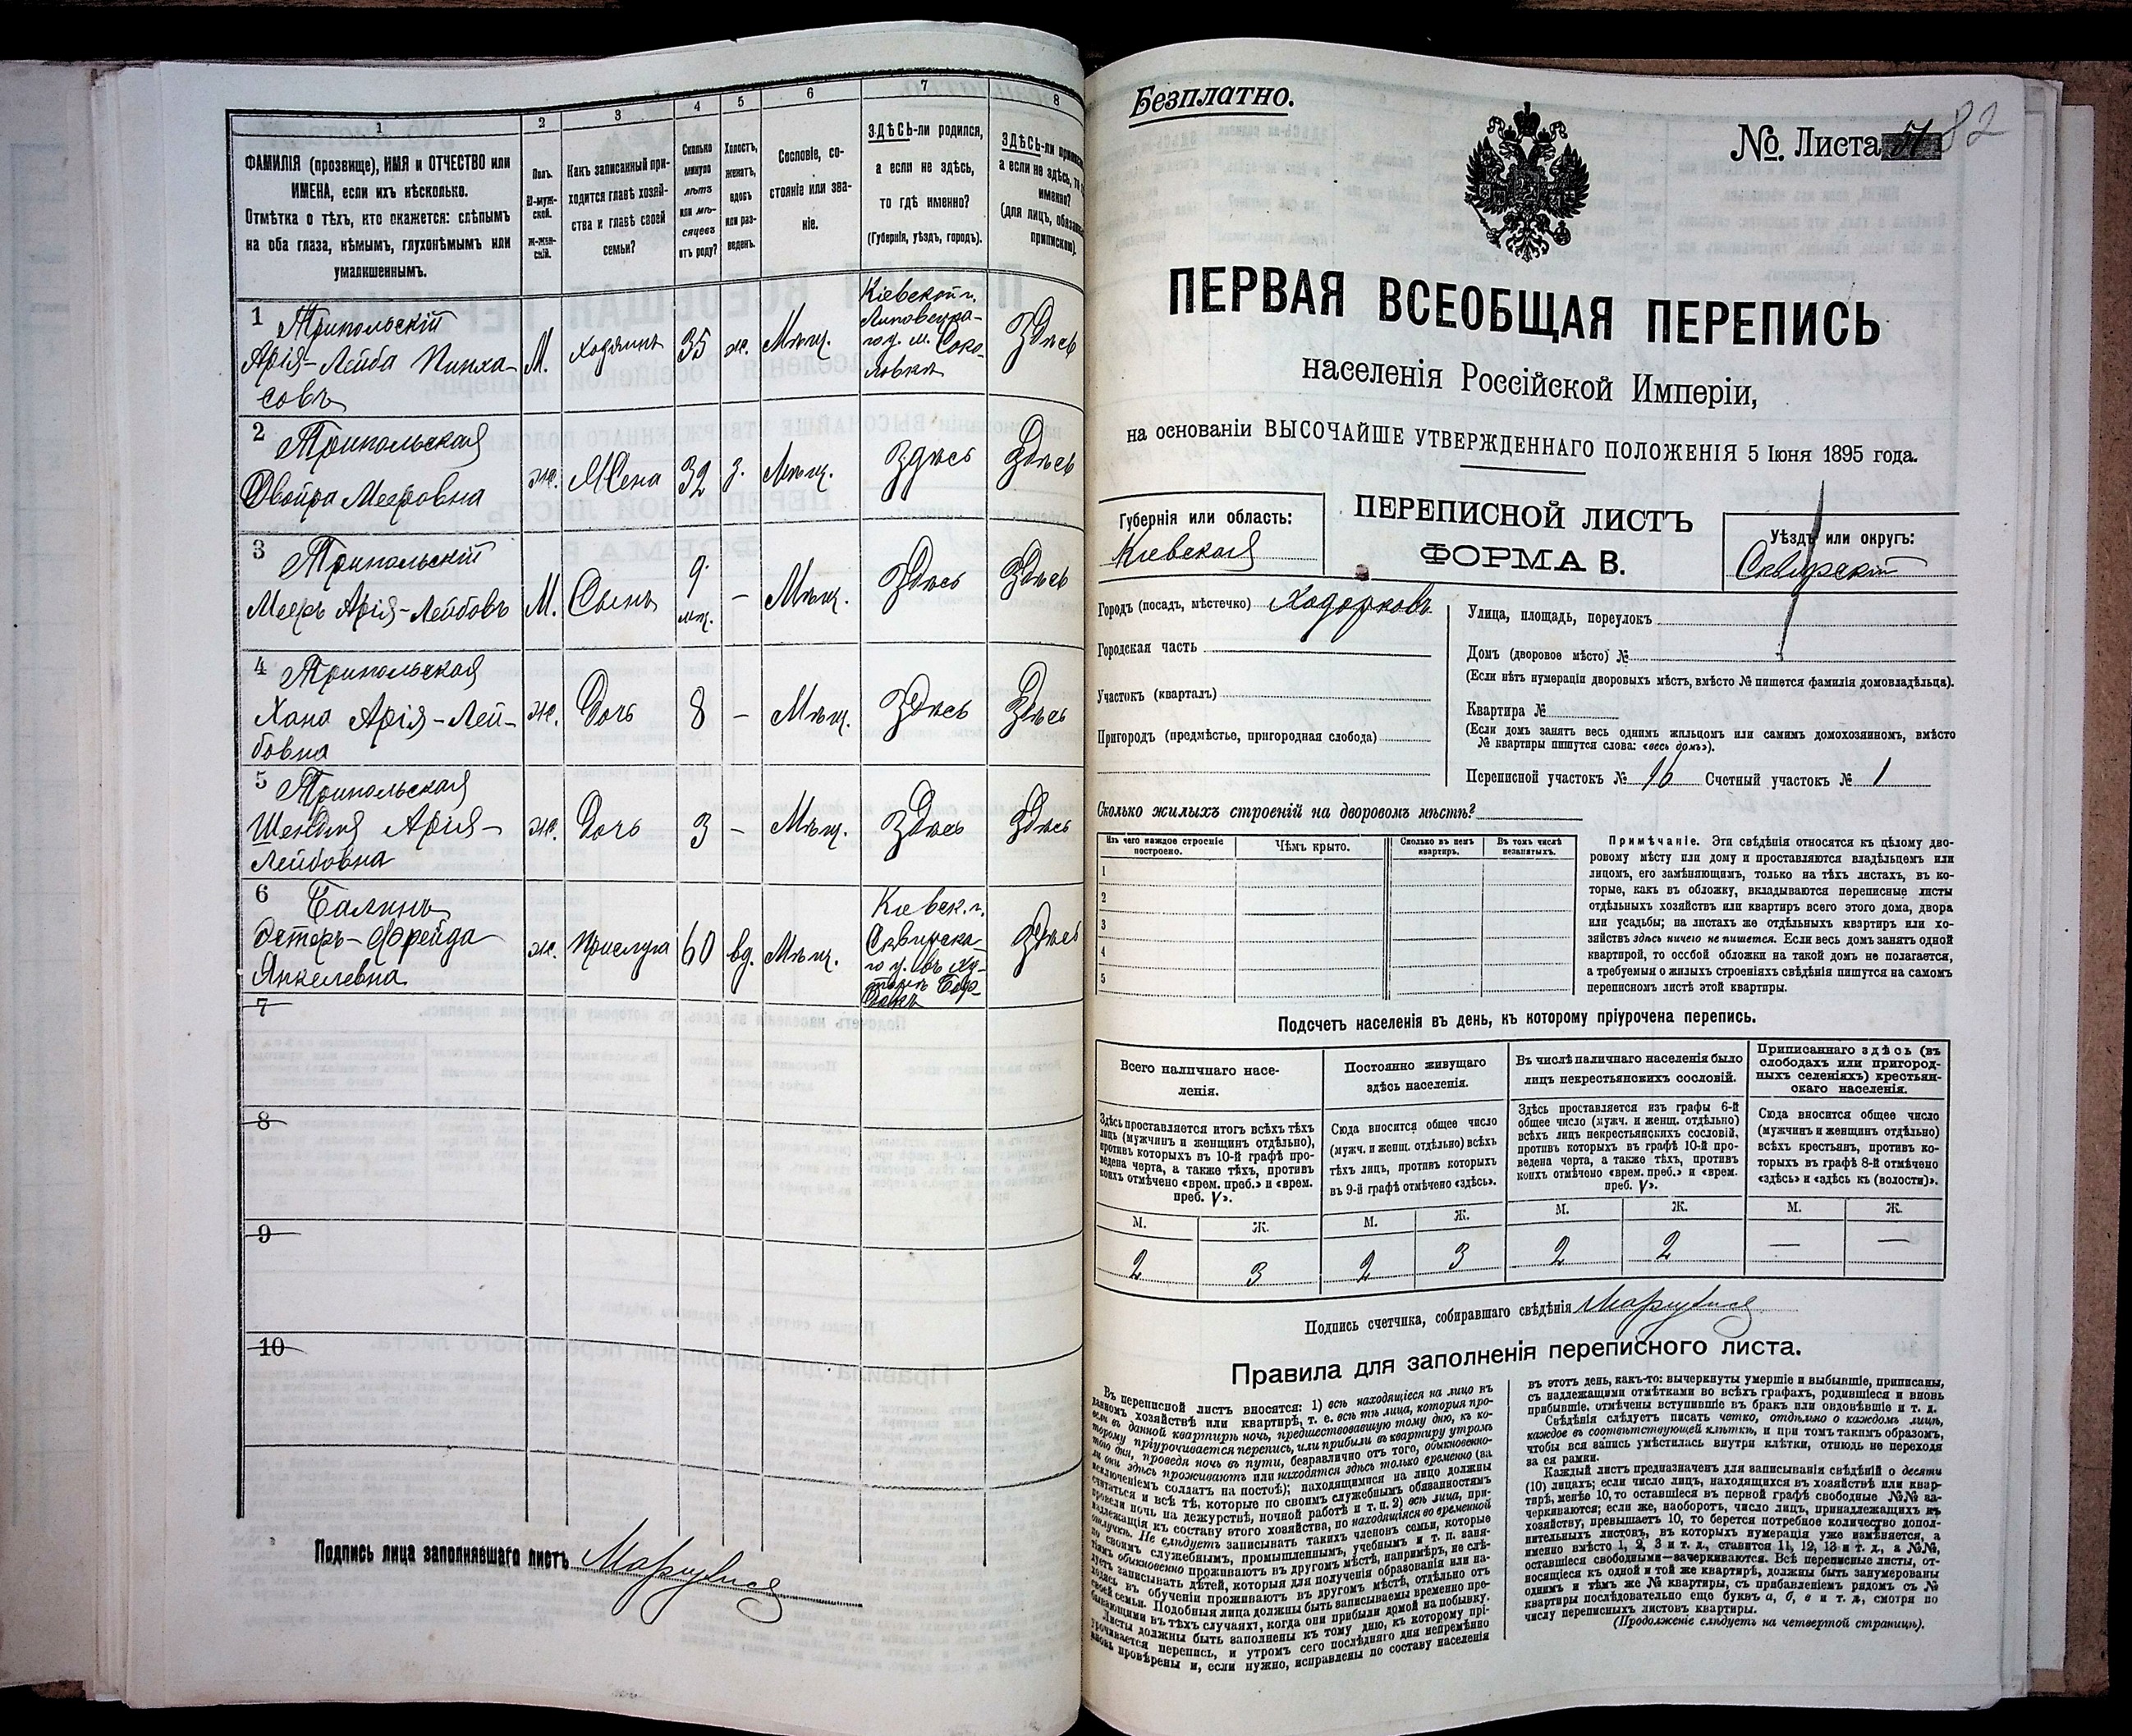 1
ФАМИЛІЯ (прозвище), ИМЯ и ОТЧЕСТВО или
ИМЕНА, если ихъ нѣсколько.
Отмѣтка о тѣхъ, кто окажется: слѣпымъ
на оба глаза, нѣмымъ, глухонѣмымъ или
умалишеннымъ.
2
Полъ.
М-муж-
ской.
Ж-жен-
скій.
3
Какъ записанный при-
ходится главѣ хозяй-
ства и главѣ своей
семьи?
4
Сколько
минуло
лѣтъ
или мѣ-
сяцевъ
отъ роду?
5
Холостъ,
женатъ,
вдовъ
или раз-
веденъ.
6
Сословіе, со-
стояніе или зва-
ніе.
7
ЗДѢСЬ-ли родился,
а если не здѣсь,
то гдѣ именно?
(Губернія, уѣздъ, городъ).
8
ЗДѢСЬ-ли
а если не здѣсь,
именно?
(для лицъ,
припискою).
1 Трипольскій
Арія-Лейба Пинха-
совъ
М.
Хозяинъ
35
ж.
Мѣщ.
Кіевской г.
Липовецка-
го у. м. Соко-
ловка
Здѣсь
2 Трипольская
Двойра Мееровна
ж.
Жена
32
з.
Мѣщ.
Здѣсь
Здѣсь
3 Трипольскій
Мееръ Арія-Лейбовъ
М.
Сынъ
9
мѣ.
–
Мѣщ.
Здѣсь
Здѣсь
4 Трипольская
Хана Арія-Лей-
бовна
ж.
Дочь
8
–
Мѣщ.
Здѣсь
Здѣсь
5 Трипольская
Шендля Арія-
Лейбовна
ж.
Дочь
3
–
Мѣщ.
Здѣсь
Здѣсь
6
Эстеръ-Фрейда
Янкелевна
ж.
Прислуга
60
вд.
Мѣщ.
Кіевск. г.
Сквирска-
го у.
Здѣсь
7
8
9
10
Подпись лица заполнявшаго листъ
Безплатно.
No. Листа 82
ПЕРВАЯ ВСЕОБЩАЯ ПЕРЕПИСЬ
населенія Россійской Имперіи,
на основаніи ВЫСОЧАЙШЕ УТВЕРЖДЕННАГО ПОЛОЖЕНІЯ 5 Іюня 1895 года.
Губернія или область:
Кіевская
ПЕРЕПИСНОЙ ЛИСТЪ
ФОРМА В.
Уѣздъ или округъ:
Сквирскій
Городъ (посадъ, мѣстечко) Ходорковъ
Городская часть
Участокъ (кварталъ)
Пригородъ (предмѣстье, пригородная слобода)
Улица, площадь, переулокъ
Домъ (дворовое мѣсто) №
(Если нѣтъ нумераціи дворовыхъ мѣстъ, вмѣсто № пишется фамилія домовладѣльца).
Квартира №
(Если домъ занятъ весь однимъ жильцомъ или самимъ домохозяиномъ, вмѣсто
№ квартиры пишутся слова: «весь домъ»).
Переписной участокъ № 16 Счетный участокъ № 1
Сколько жилыхъ строеній на дворовомъ мѣстѣ?
Изъ чего каждое строеніе
построено.
Чѣмъ крыто.
Сколько въ немъ
квартиръ.
Въ томъ числѣ
незанятыхъ.
1
2
3
4
5
Примѣчаніе. Эти свѣдѣнія относятся къ цѣлому дво-
ровому мѣсту или дому и проставляются владѣльцемъ или
лицомъ, его замѣняющимъ, только на тѣхъ листахъ, въ ко-
торые, какъ въ обложку, вкладываются переписные листы
отдѣльныхъ хозяйствъ или квартиръ всего этого дома, двора
или усадьбы; на листахъ же отдѣльныхъ квартиръ или хо-
зяйствъ здѣсь ничего не пишется. Если весь домъ занятъ одной
квартирой, то особой обложки на такой домъ не полагается,
а требуемыя о жилыхъ строеніяхъ свѣдѣнія пишутся на самомъ
переписномъ листѣ этой квартиры.
Подсчетъ населенія въ день, къ которому пріурочена перепись.
Всего наличнаго насе-
ленія.
Здѣсь проставляется итогъ всѣхъ тѣхъ
лицъ (мужчинъ и женщинъ отдѣльно),
противъ которыхъ въ 10-й графѣ про-
ведена черта, а также тѣхъ, противъ
коихъ отмѣчено «врем. преб.» и «врем.
преб. V».
Постоянно живущаго
здѣсь населенія.
Сюда вносится общее число
(мужч. и женщ. отдѣльно) всѣхъ
тѣхъ лицъ, противъ которыхъ
въ 9-й графѣ отмѣчено «здѣсь».
Въ числѣ наличнаго населенія было
лицъ некрестьянскихъ сословій.
Здѣсь проставляется изъ графы 6-й
общее число (мужч. и женщ. отдѣльно)
всѣхъ лицъ некрестьянскихъ сословій,
противъ которыхъ въ графѣ 10-й про-
ведена черта, а также тѣхъ, противъ
коихъ отмѣчено «врем. преб.» и «врем.
преб. V».
Приписаннаго здѣсь (въ
слободахъ или пригород-
ныхъ селеніяхъ) крестьян-
скаго населенія.
Сюда вносится общее число
(мужчинъ и женщинъ отдѣльно)
всѣхъ крестьянъ, противъ ко-
торыхъ въ графѣ 8-й отмѣчено
«здѣсь» и «здѣсь къ (волости)».
М. Ж. М. Ж. М. Ж. М. Ж.
2 3 2 3 2 2 — —
Подпись счетчика, собиравшаго свѣдѣнія
Правила для заполненія переписного листа.
Въ переписной листъ вносятся: 1) всѣ находящіеся на лицо въ
данномъ хозяйствѣ или квартирѣ, т. е. всѣ тѣ лица, которыя про-
вели въ данной квартирѣ ночь, предшествовавшую тому дню, къ ко-
торому пріурочивается перепись, или прибыли въ квартиру утромъ
того дня, проведя ночь въ пути, безразлично отъ того, обыкновенно-
ли они здѣсь проживаютъ или находятся здѣсь только временно (за
исключеніемъ солдатъ на постоѣ); находящимися на лицо должны
считаться и всѣ тѣ, которые по своимъ служебнымъ обязанностямъ
провели ночь на дежурствѣ, ночной работѣ и т. п. 2) всѣ лица, при-
надлежащія къ составу этого хозяйства, но находящіяся во временной
отлучкѣ. Не слѣдуетъ записывать такихъ членовъ семьи, которые
по своимъ служебнымъ, промышленнымъ, учебнымъ и т. п. заня-
тіямъ обыкновенно проживаютъ въ другомъ мѣстѣ, напримѣръ, не слѣ-
дуетъ записывать дѣтей, которыя для полученія образованія или на-
ходясь въ обученіи проживаютъ въ другомъ мѣстѣ, отдѣльно отъ
своей семьи. Подобныя лица должны быть записываемы временно пре-
бывающими въ тѣхъ случаяхъ, когда они прибыли домой на побывку.
Листы должны быть заполнены къ тому дню, къ которому прі-
урочивается перепись, и утромъ сего послѣдняго дня непремѣнно
вновь провѣрены и, если нужно, исправлены по составу населенія
въ этотъ день, какъ-то: вычеркнуты умершіе и выбывшіе, приписаны,
съ надлежащими отмѣтками во всѣхъ графахъ, родившіеся и вновь
прибывшіе, отмѣчены вступившіе въ бракъ или овдовѣвшіе и т. д.
Свѣдѣнія слѣдуетъ писать четко, отдѣльно о каждомъ лицѣ,
каждое въ соотвѣтствующей клѣткѣ, и при томъ такимъ образомъ,
чтобы вся запись умѣстилась внутри клѣтки, отнюдь не переходя
за ея рамки.
Каждый листъ предназначенъ для записыванія свѣдѣній о десяти
(10) лицахъ; если число лицъ, находящихся въ хозяйствѣ или квар-
тирѣ, менѣе 10, то оставшіеся въ первой графѣ свободные №№ за-
черкиваются; если же, наоборотъ, число лицъ, принадлежащихъ къ
хозяйству, превышаетъ 10, то берется потребное количество допол-
нительныхъ листовъ, въ которыхъ нумерація уже измѣняется, а
именно вмѣсто 1, 2, 3 и т. д., ставится 11, 12, 13 и т. д., а №№,
оставшіеся свободными—зачеркиваются. Всѣ переписные листы, от-
носящіеся къ одной и той же квартирѣ, должны быть занумерованы
однимъ и тѣмъ же № квартиры, съ прибавленіемъ рядомъ съ №
квартиры послѣдовательно еще буквъ а, б, в и т. д., смотря по
числу переписныхъ листовъ квартиры.
(Продолженіе слѣдуетъ на четвертой страницѣ).